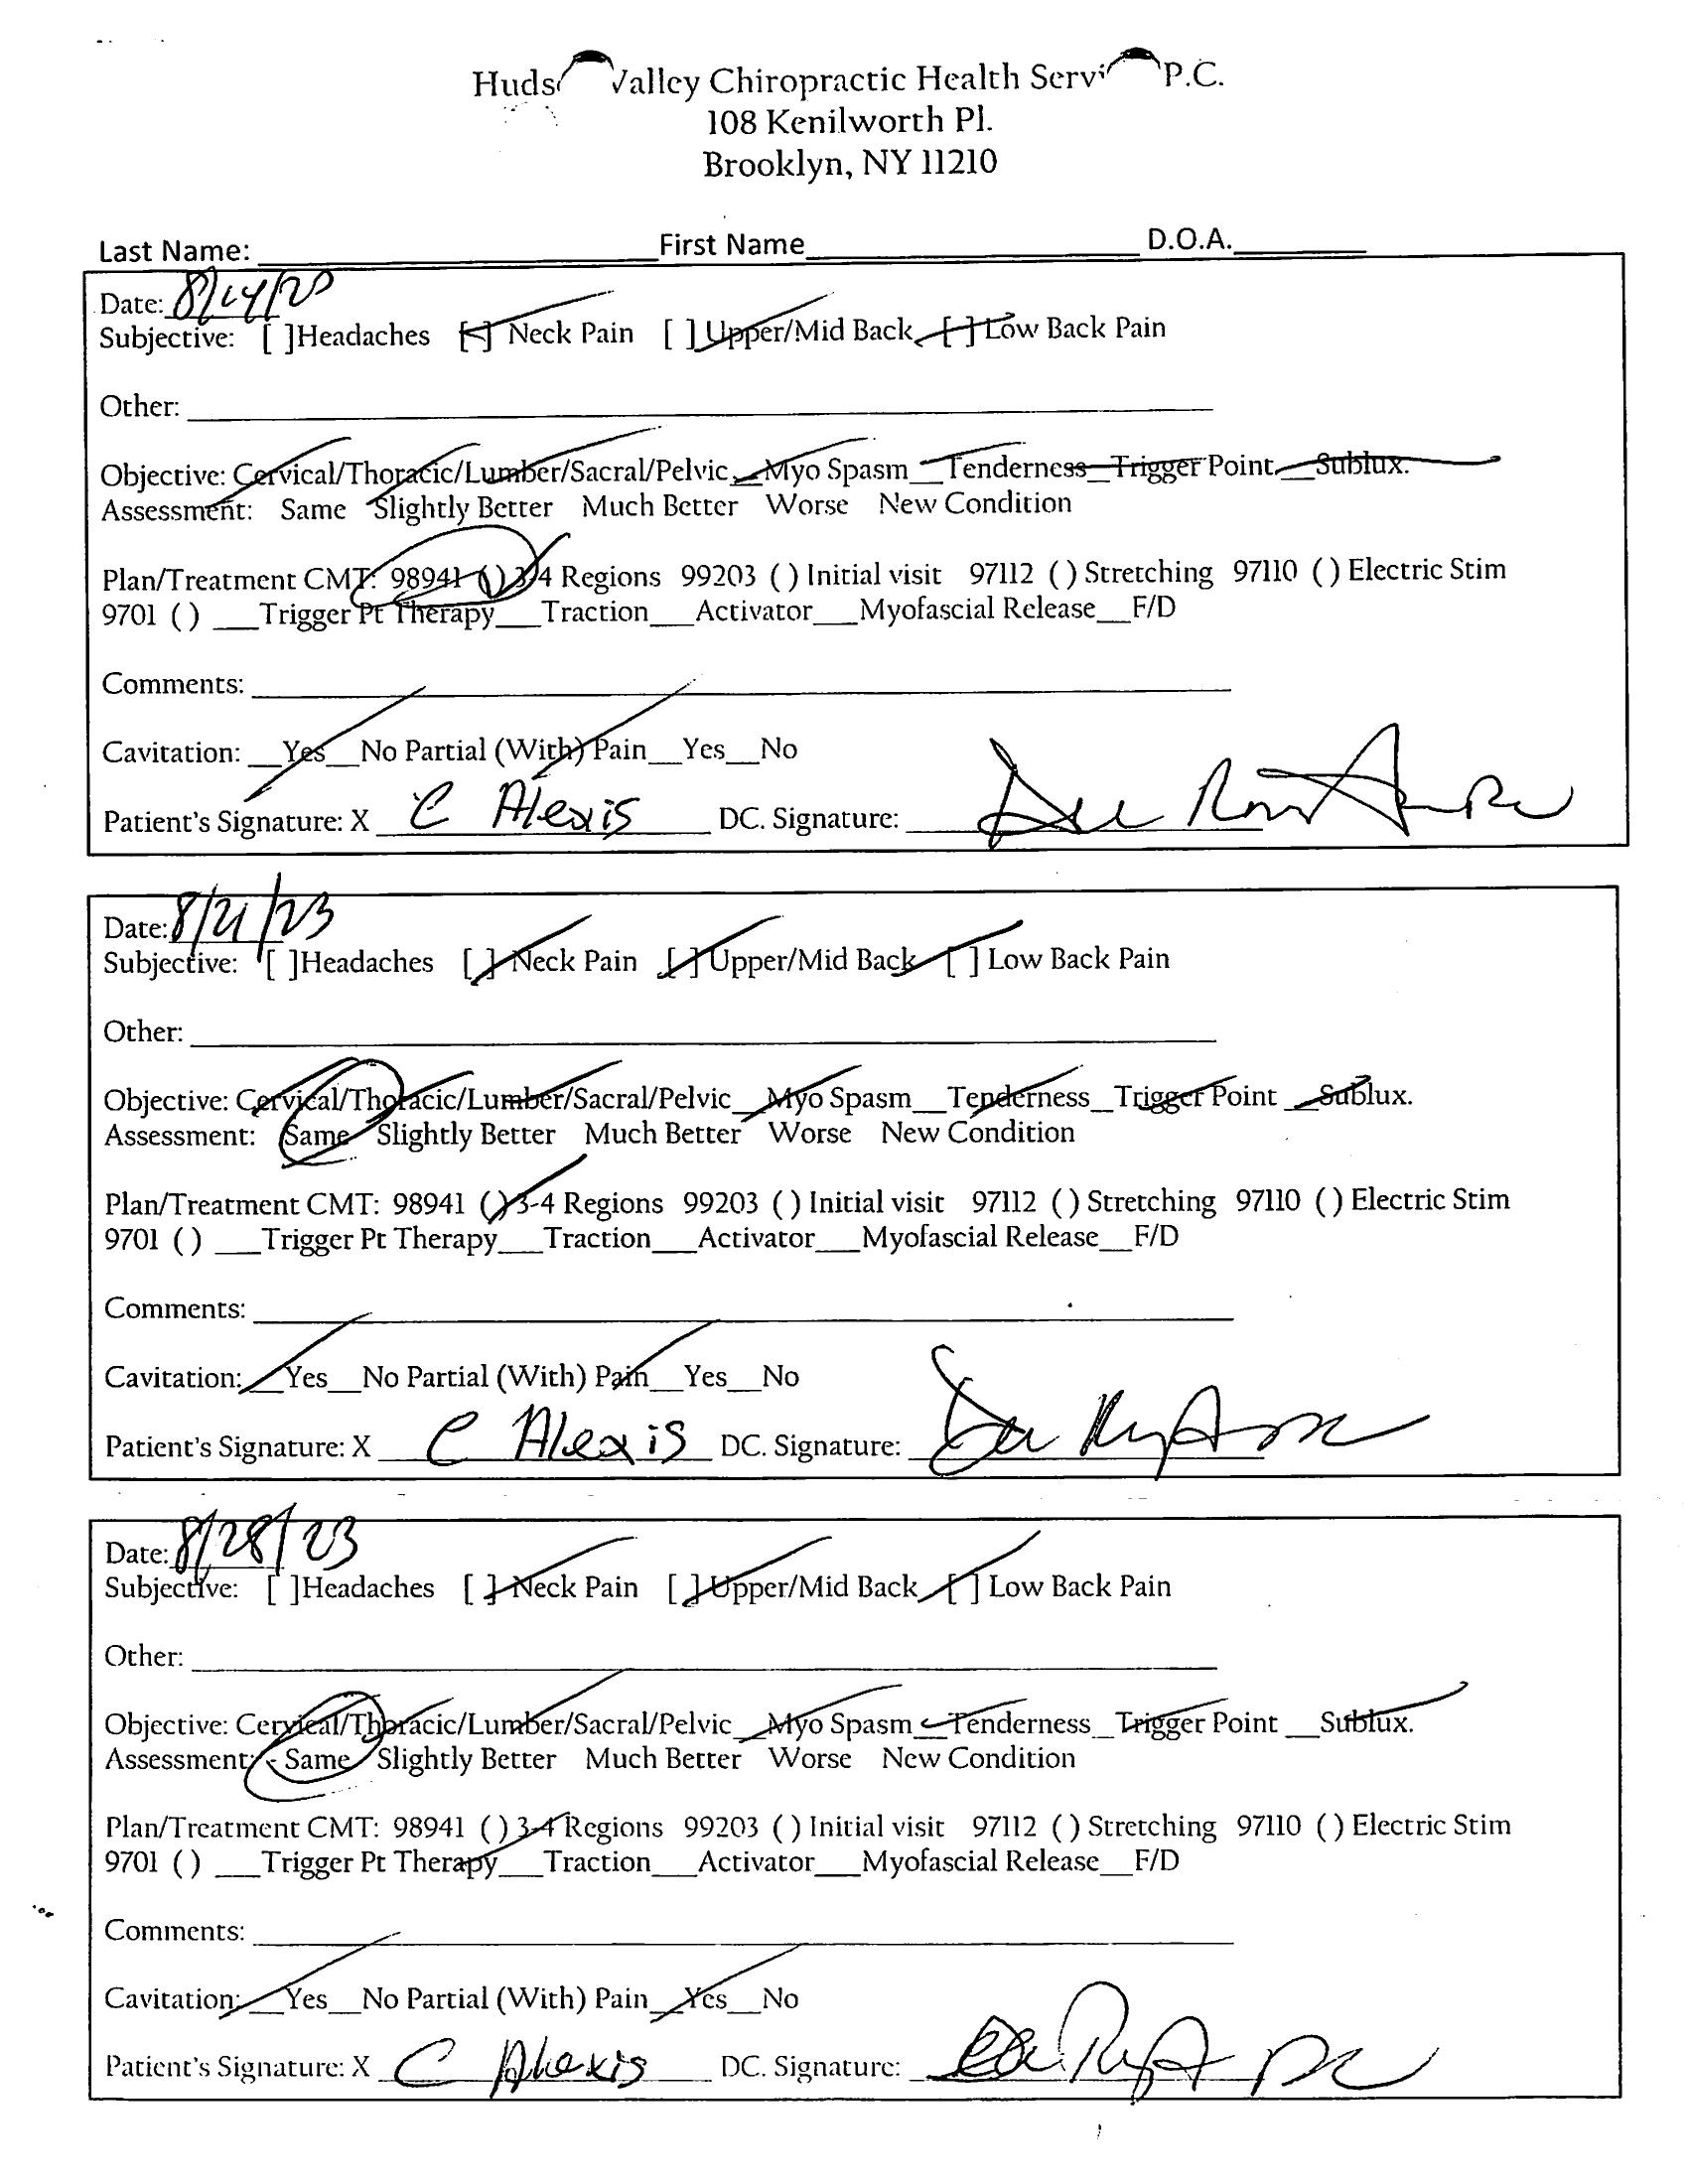 Huds Valley Chiropractic Health Servi P.C.
108 Kenilworth Pl.
Brooklyn, NY 11210
Last Name: First Name D.O.A.
Date: 8/14/23
Subjective: [ ]Headaches [ ] Neck Pain [ ] Upper/Mid Back [ ] Low Back Pain
Other:
Objective: Cervical/Thoracic/Lumber/Sacral/Pelvic__Myo Spasm__Tenderness__Trigger Point__Sublux.
Assessment: Same Slightly Better Much Better Worse New Condition
Plan/Treatment CMT: 98941 ( ) 3-4 Regions 99203 ( ) Initial visit 97112 ( ) Stretching 97110 ( ) Electric Stim
9701 ( ) ___Trigger Pt Therapy___Traction___Activator___Myofascial Release__F/D
Comments:
Cavitation: __Yes__No Partial (With) Pain__Yes__No
Patient's Signature: X C Alexis DC. Signature:
Date: 8/21/23
Subjective: [ ]Headaches [ ] Neck Pain [ ] Upper/Mid Back [ ] Low Back Pain
Other:
Objective: Cervical/Thoracic/Lumber/Sacral/Pelvic__Myo Spasm__Tenderness__Trigger Point __Sublux.
Assessment: Same Slightly Better Much Better Worse New Condition
Plan/Treatment CMT: 98941 ( ) 3-4 Regions 99203 ( ) Initial visit 97112 ( ) Stretching 97110 ( ) Electric Stim
9701 ( ) ___Trigger Pt Therapy___Traction___Activator___Myofascial Release__F/D
Comments:
Cavitation: __Yes__No Partial (With) Pain__Yes__No
Patient's Signature: X C Alexis DC. Signature:
Date: 8/28/23
Subjective: [ ]Headaches [ ] Neck Pain [ ] Upper/Mid Back [ ] Low Back Pain
Other:
Objective: Cervical/Thoracic/Lumber/Sacral/Pelvic__Myo Spasm__Tenderness__Trigger Point __Sublux.
Assessment: Same Slightly Better Much Better Worse New Condition
Plan/Treatment CMT: 98941 ( ) 3-4 Regions 99203 ( ) Initial visit 97112 ( ) Stretching 97110 ( ) Electric Stim
9701 ( ) ___Trigger Pt Therapy___Traction___Activator___Myofascial Release__F/D
Comments:
Cavitation: __Yes__No Partial (With) Pain__Yes__No
Patient's Signature: X C Alexis DC. Signature: